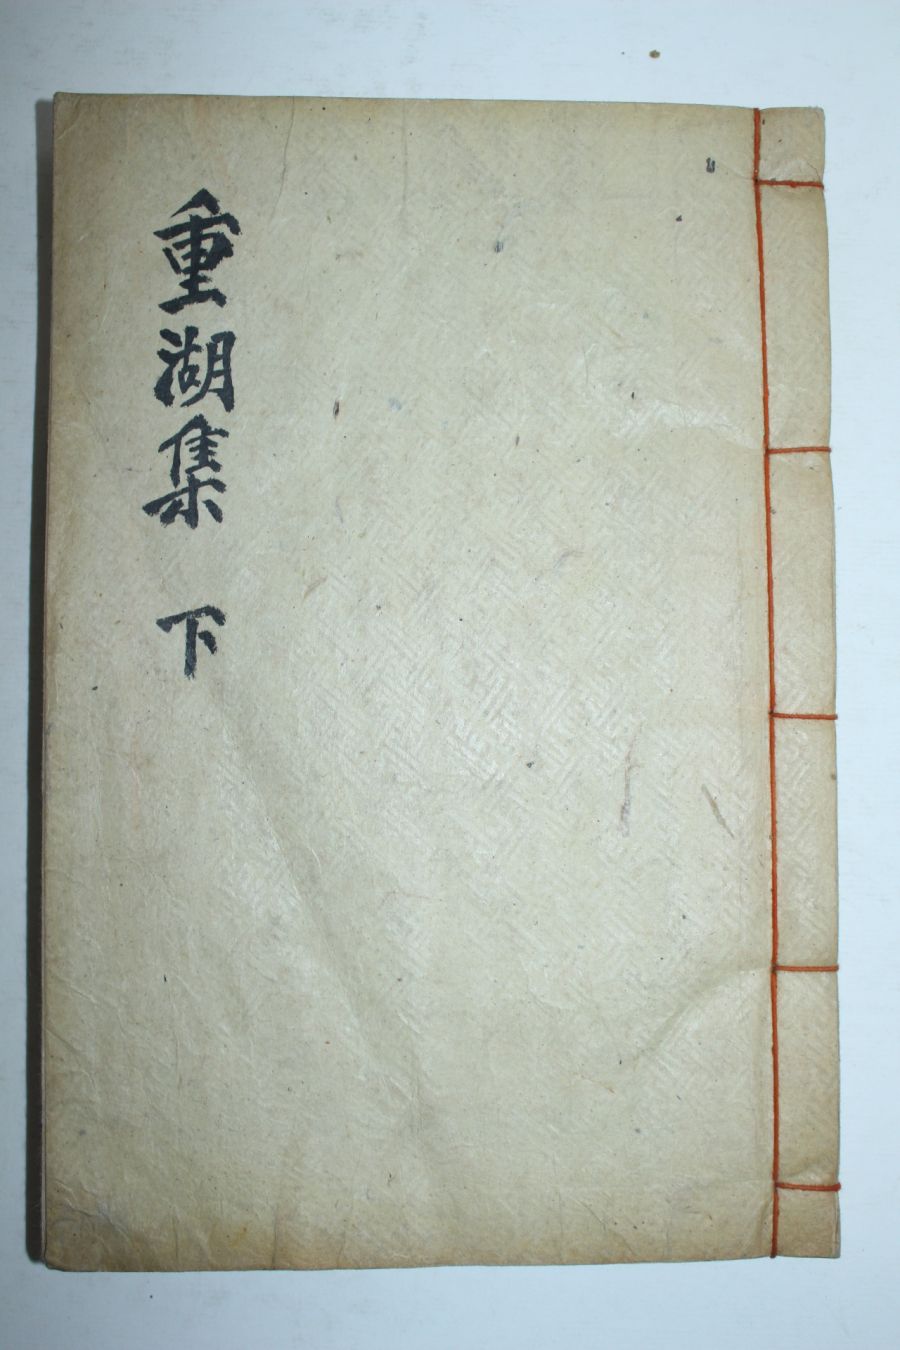 重湖集 下